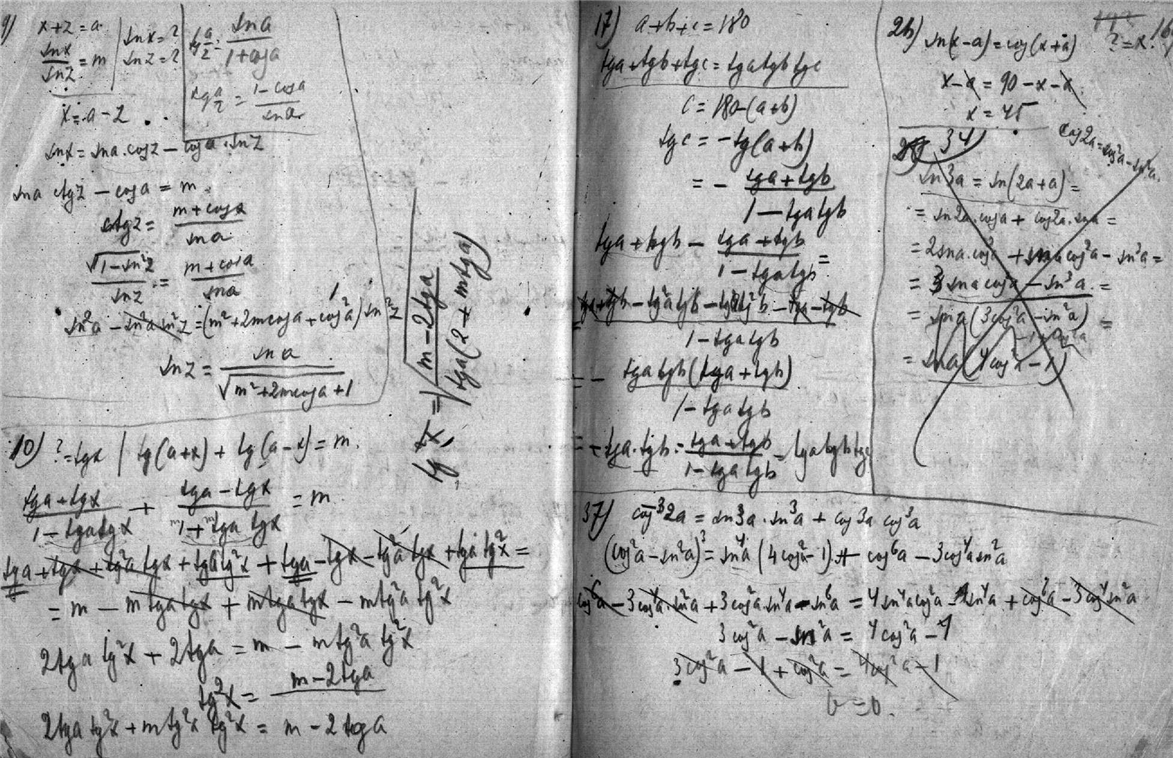 9) x+z=a
sn x / sn z = m
sn x = ?
sn z = ?
tg a/2 = sn a / 1+cos a
tg a/2 = 1-cos a / sn a
x = a - z
sn x = sn a . cos z - cos a . sn z
sn a ctg z - cos a = m
ctg z = m+cos a / sn a
√1-sn²z / sn z = m+cos a / sn a
sn²a - sn²a sn²z = (m²+2m cos a + cos²a) sn²z
sn z = sn a / √m²+2m cos a+1
tg x = √ m-2tg a / tg a (2 + m tg a)
10) ? = tg x | tg (a+x) + tg (a-x) = m
tg a + tg x / 1 - tg a tg x + tg a - tg x / 1 + tg a tg x = m
tg a + tg x + tg²a tg x + tg a tg²x + tg a - tg x - tg²a tg x + tg a tg²x =
= m - m tg a tg x + m tg a tg x - m tg²a tg²x
2tg a tg²x + 2tg a = m - m tg²a tg²x
tg²x = m-2tg a
2tg a tg²x + m tg²x tg²x = m - 2 tg a
17) a+b+c = 180
tg a + tg b + tg c = tg a tg b tg c
c = 180-(a+b)
tg c = -tg (a+b)
= - tg a + tg b / 1 - tg a tg b
tg a + tg b - tg a + tg b / 1 - tg a tg b =
tg a + tg b - tg²a tg b - tg a tg²b - tg a - tg b / 1 - tg a tg b
= - tg a tg b (tg a + tg b) / 1 - tg a tg b
= - tg a . tg b . tg a + tg b / 1 - tg a tg b = tg a tg b tg c
26) sn (x-a) = cos (x+a) ? = x
x-a = 90-x-a
x = 45
34
cos 2a = cos²a - sn²a
sn 3a = sn (2a+a) =
= sn 2a . cos a + cos 2a . sn a =
= 2 sn a . cos²a + sn a cos²a - sn³a =
= 3 sn a cos²a - sn³a =
= sn a (3cos²a - sn²a) =
= sn a (4 cos²a - 1)
37) cos³2a = sn 3a . sn³a + cos 3a cos³a
(cos²a - sn²a)³ = sn⁴a (4 cos²a - 1) + cos⁶a - 3cos⁴a sn²a
cos⁶a - 3 cos⁴a sn²a + 3 cos²a . sn⁴a - sn⁶a = 4 sn⁴a cos²a - sn⁴a + cos⁶a - 3 cos⁴a sn²a
3 cos²a - sn²a = 4 cos²a - 1
3 cos²a - 1 + cos²a = 4 cos²a - 1
0 = 0.